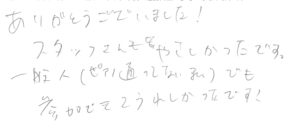 ありがとうございました!
スタッフさんもやさしかったです。
一般人(ピアノ通ってない
でも
参加できてうれしかったです!